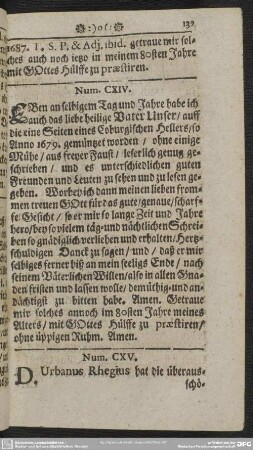 ☼:)o(:☼ 139
1687. I. S. P. & Adj. ibid. getraue mir sol-
ches auch noch ietzo in meinem 80sten Jahre
mit GOttes Hülffe zu præstiren.
Num. CXIV.
EBen an selbigem Tag und Jahre habe ich
auch das liebe heilige Vater Unser / auff
die eine Seiten eines Coburgischen Hellers / so
Anno 1679. gemüntzet worden / ohne einige
Mühe / aus freyer Faust / leserlich genug ge-
schrieben / und es unterschiedlichen guten
Freunden und Leuten zu sehen und zu lesen ge-
geben. Worbey ich dann meinen lieben from-
men treuen GOtt für das gute / genaue / scharf-
fe Gesicht / so er mir so lange Zeit und Jahre
hero / bey so vielem täg- und nächtlichen Schrei-
ben so gnädiglich verliehen und erhalten / Hertz-
schuldigen Danck zu sagen / und / daß er mir
selbiges ferner biß an mein seeligs Ende / nach
seinem Väterlichen Willen / also in allen Gna-
den fristen und lassen wolle / demüthig- und an-
dächtigst zu bitten habe. Amen. Getraue
mir solches annoch im 80sten Jahre meines
Alters / mit GOttes Hülffe zu præstiren /
ohne üppigen Ruhm. Amen.
Num. CXV.
D. Urbanus Rhegius hat die überaus-
schö-